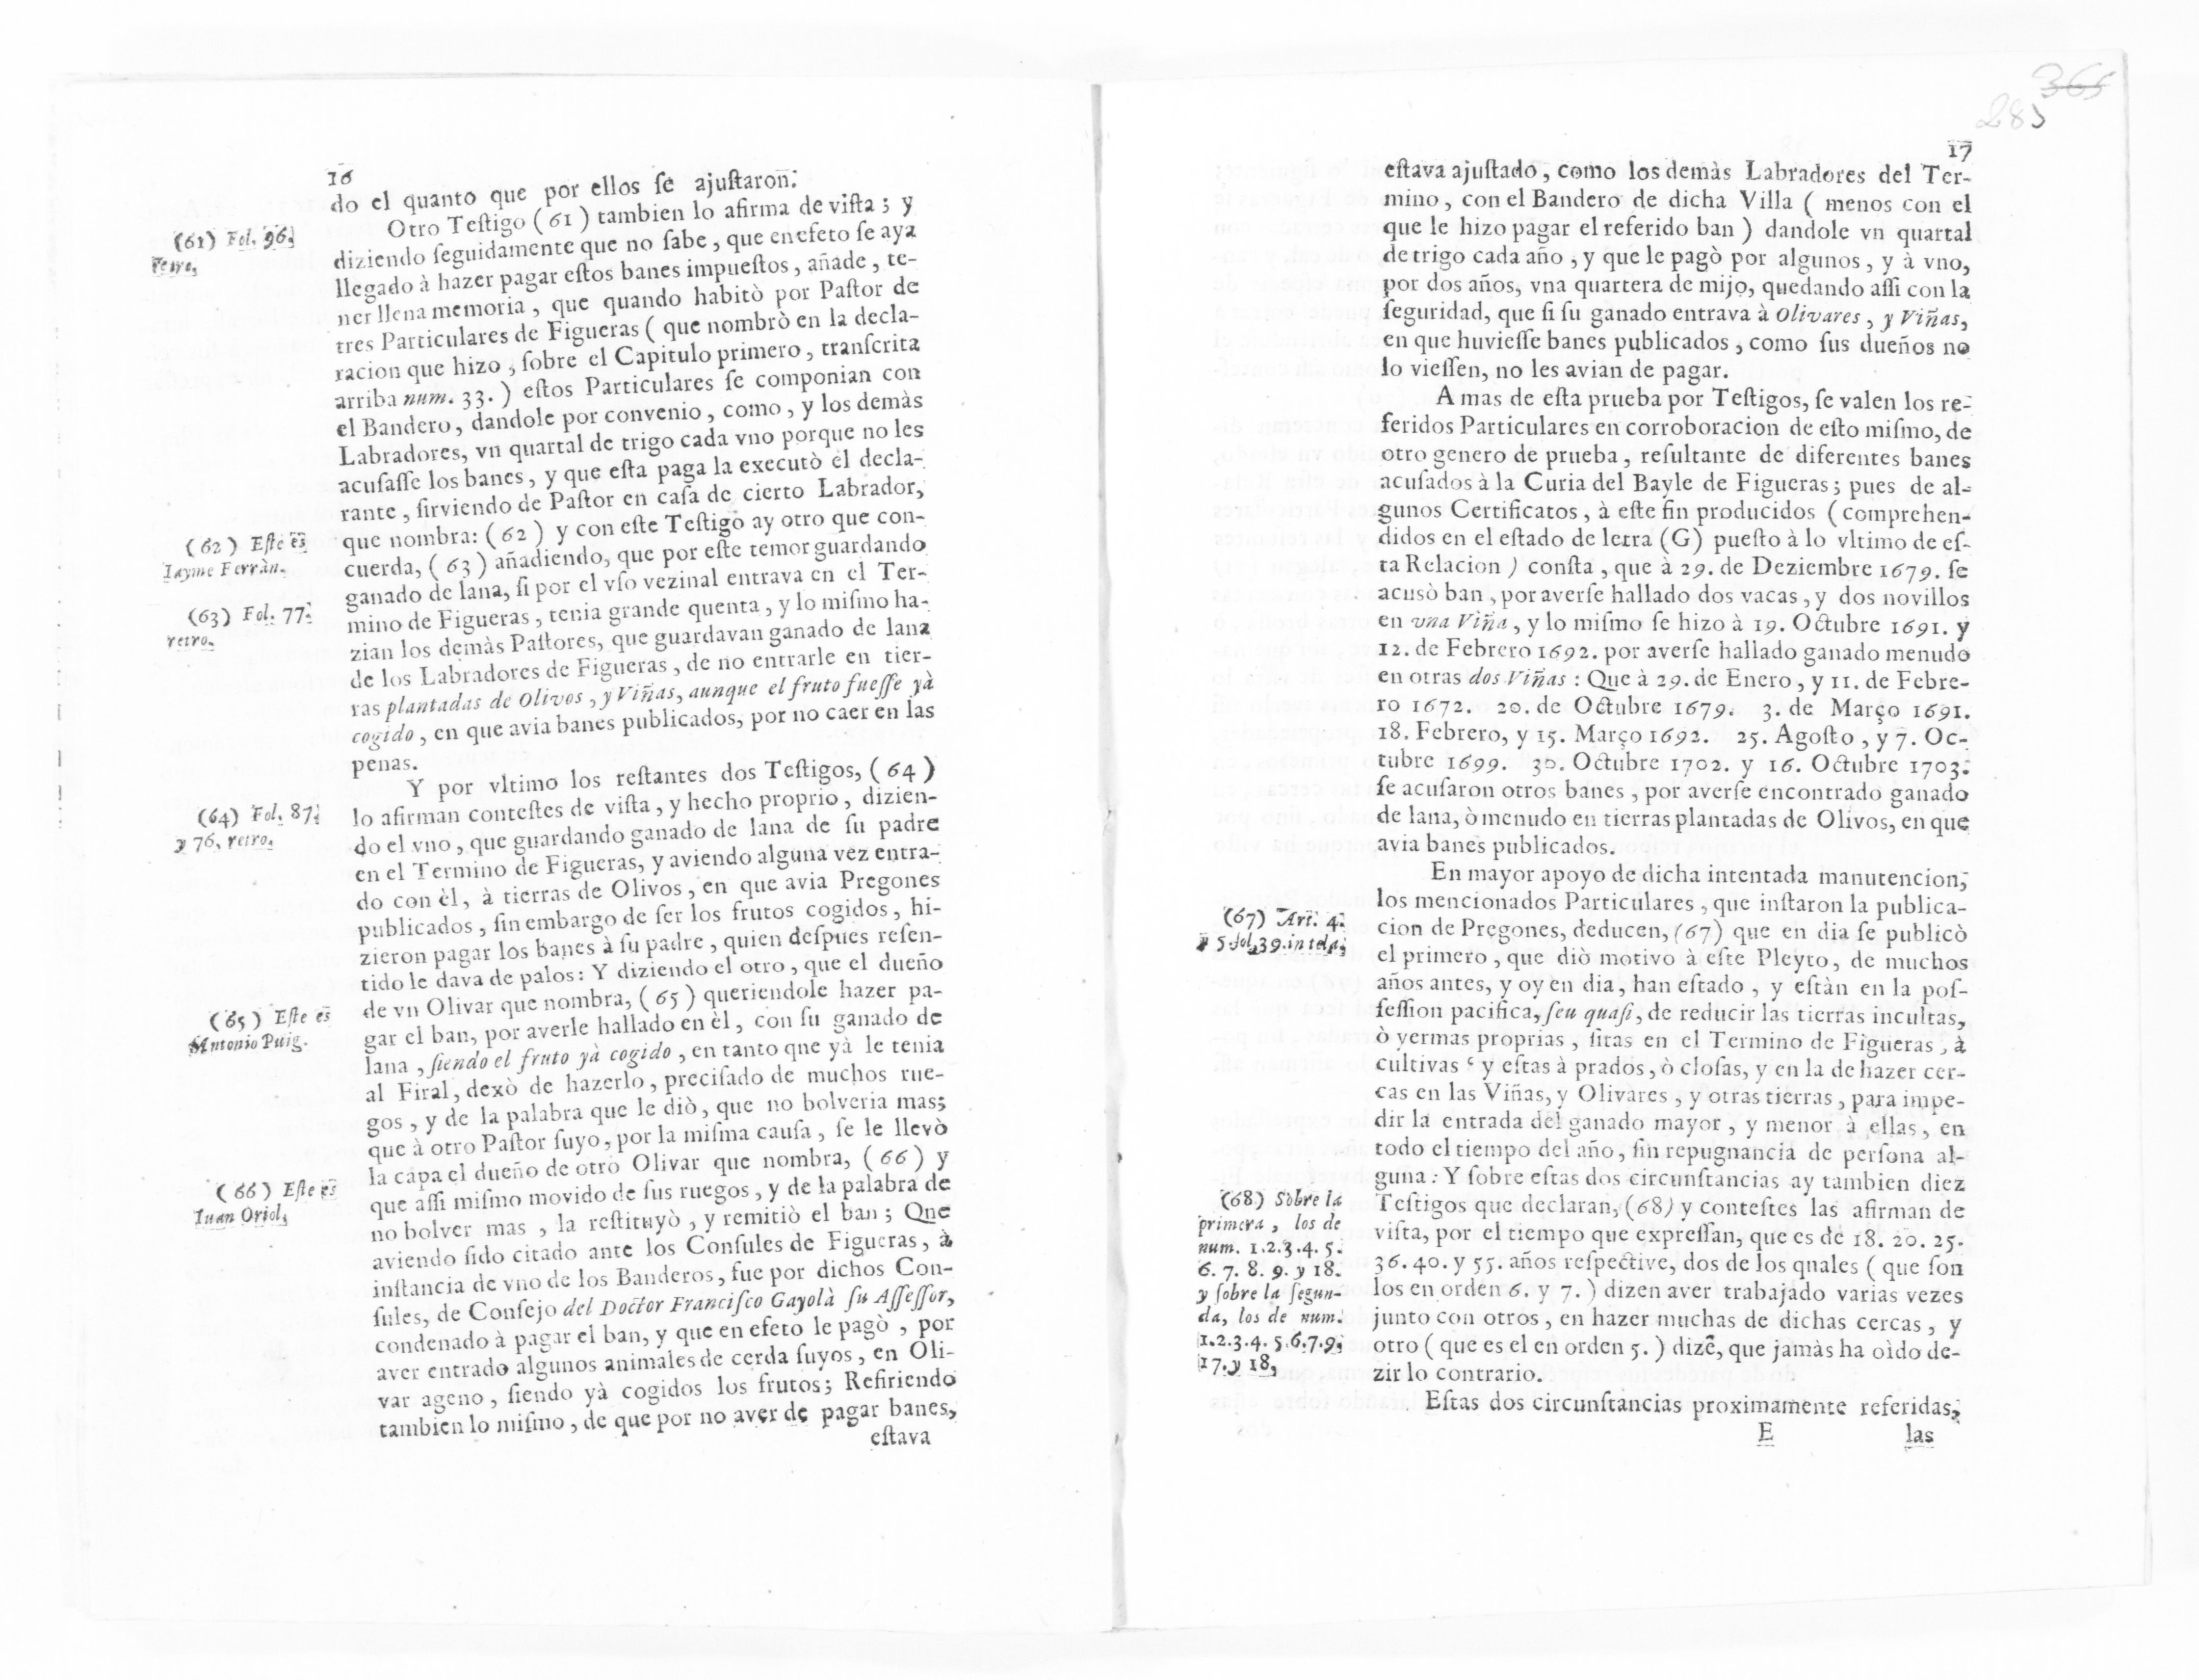 16
do el quanto que por ellos ſe ajuſtaron.
Otro Teſtigo (61) tambien lo afirma de viſta; y
diziendo ſeguidamente que no ſabe, que enefeto ſe aya
llegado à hazer pagar eſtos banes impueſtos, añade, te-
ner llena memoria, que quando habitò por Paſtor de
tres Particulares de Figueras (que nombrò en la decla-
racion que hizo, ſobre el Capitulo primero, tranſcrita
arriba num. 33.) eſtos Particulares ſe componian con
el Bandero, dandole por convenio, como, y los demàs
Labradores, vn quartal de trigo cada vno porque no les
acuſaſſe los banes, y que eſta paga la executò el decla-
rante, ſirviendo de Paſtor en caſa de cierto Labrador,
que nombra: (62) y con eſte Teſtigo ay otro que con-
cuerda, (63) añadiendo, que por eſte temor guardando
ganado de lana, ſi por el vſo vezinal entrava en el Ter-
mino de Figueras, tenia grande quenta, y lo miſmo ha-
zian los demàs Paſtores, que guardavan ganado de lana
de los Labradores de Figueras, de no entrarle en tier-
ras plantadas de Olivos, y Viñas, aunque el fruto fueſſe yà
cogido, en que avia banes publicados, por no caer en las
penas.
Y por vltimo los reſtantes dos Teſtigos, (64)
lo afirman conteſtes de viſta, y hecho proprio, dizien-
do el vno, que guardando ganado de lana de ſu padre
en el Termino de Figueras, y aviendo alguna vez entra-
do con èl, à tierras de Olivos, en que avia Pregones
publicados, ſin embargo de ſer los frutos cogidos, hi-
zieron pagar los banes à ſu padre, quien deſpues reſen-
tido le dava de palos: Y diziendo el otro, que el dueño
de vn Olivar que nombra, (65) queriendole hazer pa-
gar el ban, por averle hallado en èl, con ſu ganado de
lana, ſiendo el fruto yà cogido, en tanto que yà le tenia
al Firal, dexò de hazerlo, preciſado de muchos rue-
gos, y de la palabra que le diò, que no bolveria mas;
que à otro Paſtor ſuyo, por la miſma cauſa, ſe le llevò
la capa el dueño de otro Olivar que nombra, (66) y
que aſſi miſmo movido de ſus ruegos, y de la palabra de
no bolver mas, la reſtituyò, y remitiò el ban; Que
aviendo ſido citado ante los Conſules de Figueras, à
inſtancia de vno de los Banderos, fue por dichos Con-
ſules, de Conſejo del Doctor Franciſco Gayolà ſu Aſſeſſor,
condenado à pagar el ban, y que en efeto le pagò, por
aver entrado algunos animales de cerda ſuyos, en Oli-
var ageno, ſiendo yà cogidos los frutos; Refiriendo
tambien lo miſmo, de que por no aver de pagar banes,
eſtava
(61) Fol. 96.
retro.
(62) Eſte es
Iayme Ferràn.
(63) Fol. 77.
retro.
(64) Fol. 87.
y 76. retro.
(65) Eſte es
Antonio Puig.
(66) Eſte es
Iuan Oriol.
365
285
17
eſtava ajuſtado, como los demàs Labradores del Ter-
mino, con el Bandero de dicha Villa (menos con el
que le hizo pagar el referido ban) dandole vn quartal
de trigo cada año, y que le pagò por algunos, y à vno,
por dos años, vna quartera de mijo, quedando aſſi con la
ſeguridad, que ſi ſu ganado entrava à Olivares, y Viñas,
en que huvieſſe banes publicados, como ſus dueños no
lo vieſſen, no les avian de pagar.
A mas de eſta prueba por Teſtigos, ſe valen los re-
feridos Particulares en corroboracion de eſto miſmo, de
otro genero de prueba, reſultante de diferentes banes
acuſados à la Curia del Bayle de Figueras; pues de al-
gunos Certificatos, à eſte fin producidos (comprehen-
didos en el eſtado de letra (G) pueſto à lo vltimo de eſ-
ta Relacion) conſta, que à 29. de Deziembre 1679. ſe
acusò ban, por averſe hallado dos vacas, y dos novillos
en vna Viña, y lo miſmo ſe hizo à 19. Octubre 1691. y
12. de Febrero 1692. por averſe hallado ganado menudo
en otras dos Viñas: Que à 29. de Enero, y 11. de Febre-
ro 1672. 20. de Octubre 1679. 3. de Março 1691.
18. Febrero, y 15. Março 1692. 25. Agoſto, y 7. Oc-
tubre 1699. 30. Octubre 1702. y 16. Octubre 1703.
ſe acuſaron otros banes, por averſe encontrado ganado
de lana, ò menudo en tierras plantadas de Olivos, en que
avia banes publicados.
En mayor apoyo de dicha intentada manutencion,
los mencionados Particulares, que inſtaron la publica-
cion de Pregones, deducen, (67) que en dia ſe publicò
el primero, que diò motivo à eſte Pleyto, de muchos
años antes, y oy en dia, han eſtado, y eſtàn en la poſ-
ſeſſion pacifica, ſeu quaſi, de reducir las tierras incultas,
ò yermas proprias, ſitas en el Termino de Figueras, à
cultivas; y eſtas à prados, ò cloſas, y en la de hazer cer-
cas en las Viñas, y Olivares, y otras tierras, para impe-
dir la entrada del ganado mayor, y menor à ellas, en
todo el tiempo del año, ſin repugnancia de perſona al-
guna: Y ſobre eſtas dos circunſtancias ay tambien diez
Teſtigos que declaran, (68) y conteſtes las afirman de
viſta, por el tiempo que expreſſan, que es de 18. 20. 25.
36. 40. y 55. años reſpective, dos de los quales (que ſon
los en orden 6. y 7.) dizen aver trabajado varias vezes
junto con otros, en hazer muchas de dichas cercas, y
otro (que es el en orden 5.) dizē, que jamàs ha oìdo de-
zir lo contrario.
Eſtas dos circunſtancias proximamente referidas,
E las
(67) Art. 4.
y 5. fol. 39. in tela.
(68) Sobre la
primera, los de
num. 1. 2. 3. 4. 5.
6. 7. 8. 9. y 18.
y ſobre la ſegun-
da, los de num.
1. 2. 3. 4. 5. 6. 7. 9.
17. y 18.